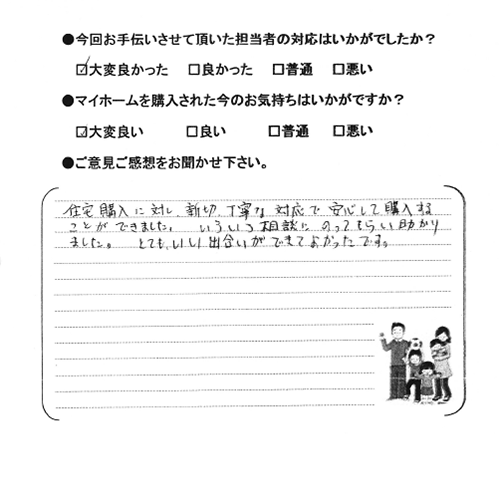 ●今回お手伝いさせて頂いた担当者の対応はいかがでしたか？
☑大変良かった　□良かった　□普通　□悪い
●マイホームを購入された今のお気持ちはいかがですか？
☑大変良い　□良い　□普通　□悪い
●ご意見ご感想をお聞かせ下さい。
住宅購入に対し、親切、丁寧な対応で安心して購入する
ことができました。いろいろ相談にのってもらい助かり
ました。とてもいい出合いができてよかったです。